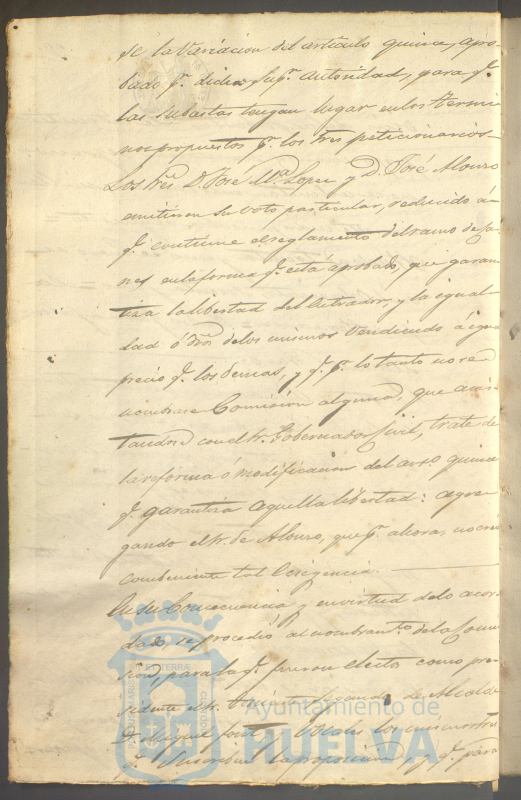 de la variacion del articulo quince, apro-
bado pr. dicha Supr. autoridad, para qe.
las subastas tengan lugar en los termi-
nos propuestos pr. los tres peticionarios
Los Sres. D. José Ma. Lopez y D. José Alonso
emitieron su voto particular, reducido á
qe. continue el reglamento del ramo de Car-
nes en la forma qe. está aprobado, que garan-
tiza la libertad del Entrador, y la igual-
dad ó dros de los mismos vendiendo á igual
precio qe. los demas, y qe. pr. lo tanto no se
nombrase Comision alguna, que avis-
tandose con el Sr. Gobernador Civil, trate de
la reforma ó modificacion del arto. quince
qe. garantiza aquella libertad: agre-
gando el Sr. de Alonso, que pr. ahora, no cree
conbeniente tal exigencia.
En su consecuencia y en virtud de lo acor-
dado, se procedió al nombramto. de la Comi-
sion, para la qe. fueron electos como pre-
sidente el Sr. Teniente segundo de Alcalde
D. Miguel y Vocales los mismos tres
qe. suscriben la proposicion y qe. para
Ayuntamiento de
HUELVA